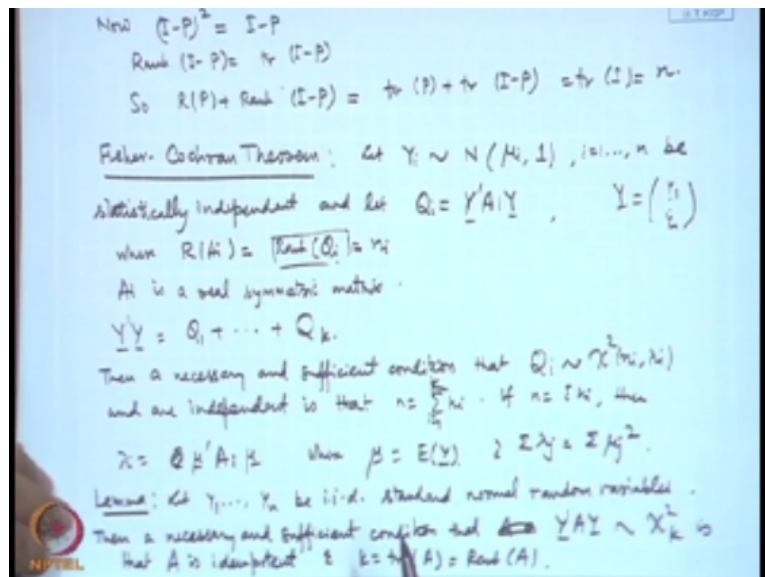 Now (I-P)² = I-P
Rank (I-P) = tr (I-P)
So R(P) + Rank (I-P) = tr (P) + tr (I-P) = tr (I) = n.
Fisher-Cochran Theorem: Let Yi ~ N(μi, 1), i=1,..., n be
statistically independent and let Qi = Y'AiY, Y = (Y1 ⋮ Yn)
where R(Ai) = Rank(Qi) = ni
Ai is a real symmetric matrix.
Y'Y = Q1 + ··· + Qk.
Then a necessary and sufficient condition that Qi ~ χ²(ni, λi)
and are independent is that n = Σ ni. If n = Σ ni, then
λi = μ'Ai μ where μ = E(Y). & Σλj = Σμj².
Lemma: Let Y1, ..., Yn be i.i.d. standard normal random variables.
Then a necessary and sufficient condition that Y'AY ~ χ²k is
that A is idempotent & k = tr(A) = Rank(A).
NPTEL